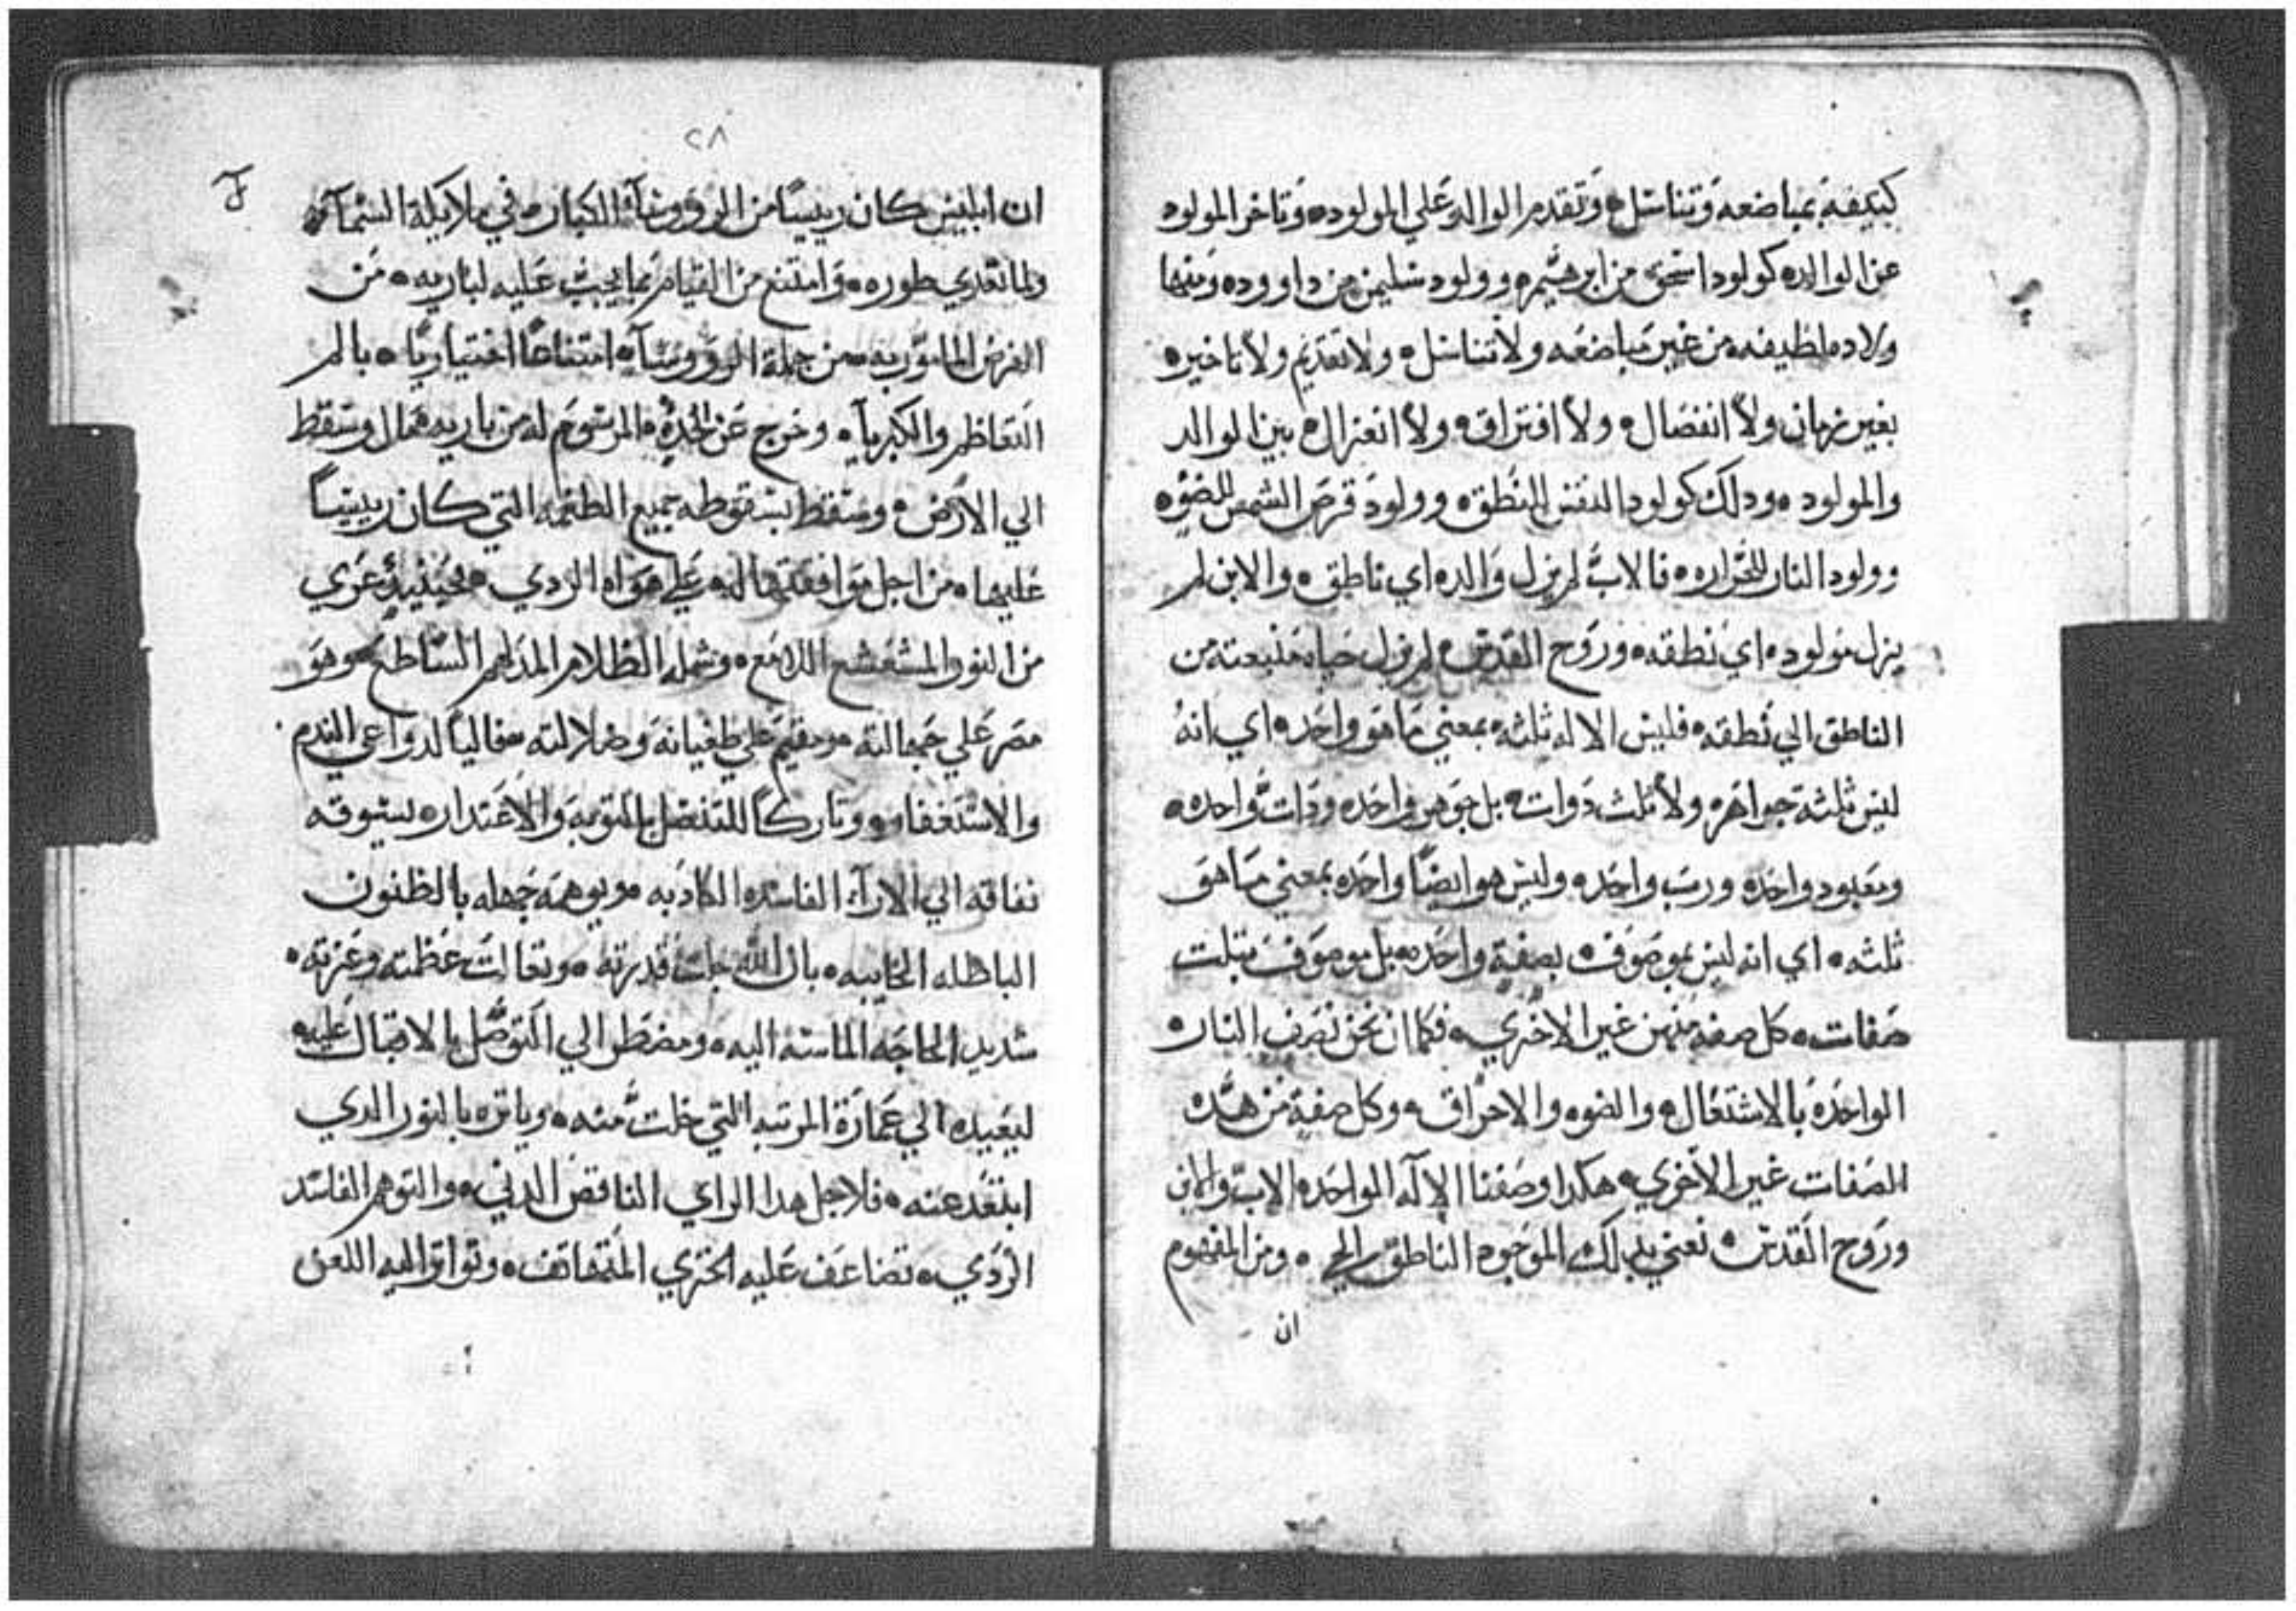 كتيفه بمباضعه وتناسل ه وتقدم الوالد علي المولود ه وتاخر المولود
عن الوالد ه كولود اسحق من ابرهيم ه وولود سليمن من داوود ه ومنها
ولاده لطيفه من غير مباضعه ولا تناسل ه ولا تقديم ولا تاخير ه
بغير زمان ولا انفصال ه ولا افتراق ه ولا انعزال ه بين الوالد
والمولود ه ودلك كولود النفس للنطق ه وولود قرص الشمس للضوء ه
وولود النار للحراره ه فالاب لم يزل والد ه اي ناطق ه والابن لم
يزل مولود ه اي نطقه ه وروح القدس ه لم يزل حياه منبعته من
الناطق الي نطقه ه فليس الاله ثلثه ه بمعني ما هو واحد ه اي انه
ليس ثلثة جواهر ه ولا ثلث دوات ه بل جوهر واحد ه ودات واحده ه
ومعبود واحد ه ورب واحد ه وليس هو ايضا واحد ه بمعني ما هو
ثلثه ه اي انه ليس بموصوف ه بصفية واحده ه بل موصوف بتلت
صفات ه كل صفه منهن غير الاخري ه فكما ان نحن نصف النار ه
الواحده بالاشتعال ه والضوء والاحراق ه وكل صفية من هده
الصفات غير الاخري ه هكدا وصفنا الاله الواحد ه الاب والابن
وروح القدس ه نعني بدلك الموجود الناطق الحي ه ومن المفهوم
ان
٢٨
ان ابليس كان رييسا من الرووسآء الكبار ه في ملايكة السمآء ه
ولما تعدي طوره ه وامتنع من القيام بما يجب عليه لباريه ه من
الفرض المامور به ه من جملة الرووسآء ه امتناعا اختياريا ه بالم
التعاظم والكبريآء ه وخرج عن الحد ه المرسوم له من باريه ه فمال وسقط
الي الارض ه وسقط بسقوطه جميع الطغمه التي كان رييسا
عليها ه من اجل موافقتها له ه علي هواه الردي ه فحينيدٍ عري
من النور المشعشع اللامع ه وشمله الظلام المدلهم الساطع ه وهو
مصر علي جهالته ه ومقيم علي طغيانه وضلالته ه قاليا لدواعي الندم
والاستغفار ه وتاركا للتنصل بالتوبه والاعتدار ه يسوقه
نفاقه الي الارآء الفاسده الكادبه ه ويوهمه جهله بالظنون
الباطله الخايبه ه بان الله جلت قدرته ه وتعالت عظمته وعزته ه
شديد الحاجه الماسه اليه ه ومضطر الي التوصل بالاقبال عليه
ليعيده الي عمارة المرتبه التي خلت منه ه ويانره بالنور الدي
ابتعد عنه ه فلاجل هدا الراي الناقص الدني ه والتوهم الفاسد
الردي ه تضاعف عليه الخزي المتهاتف ه وتواتر اليه اللعن